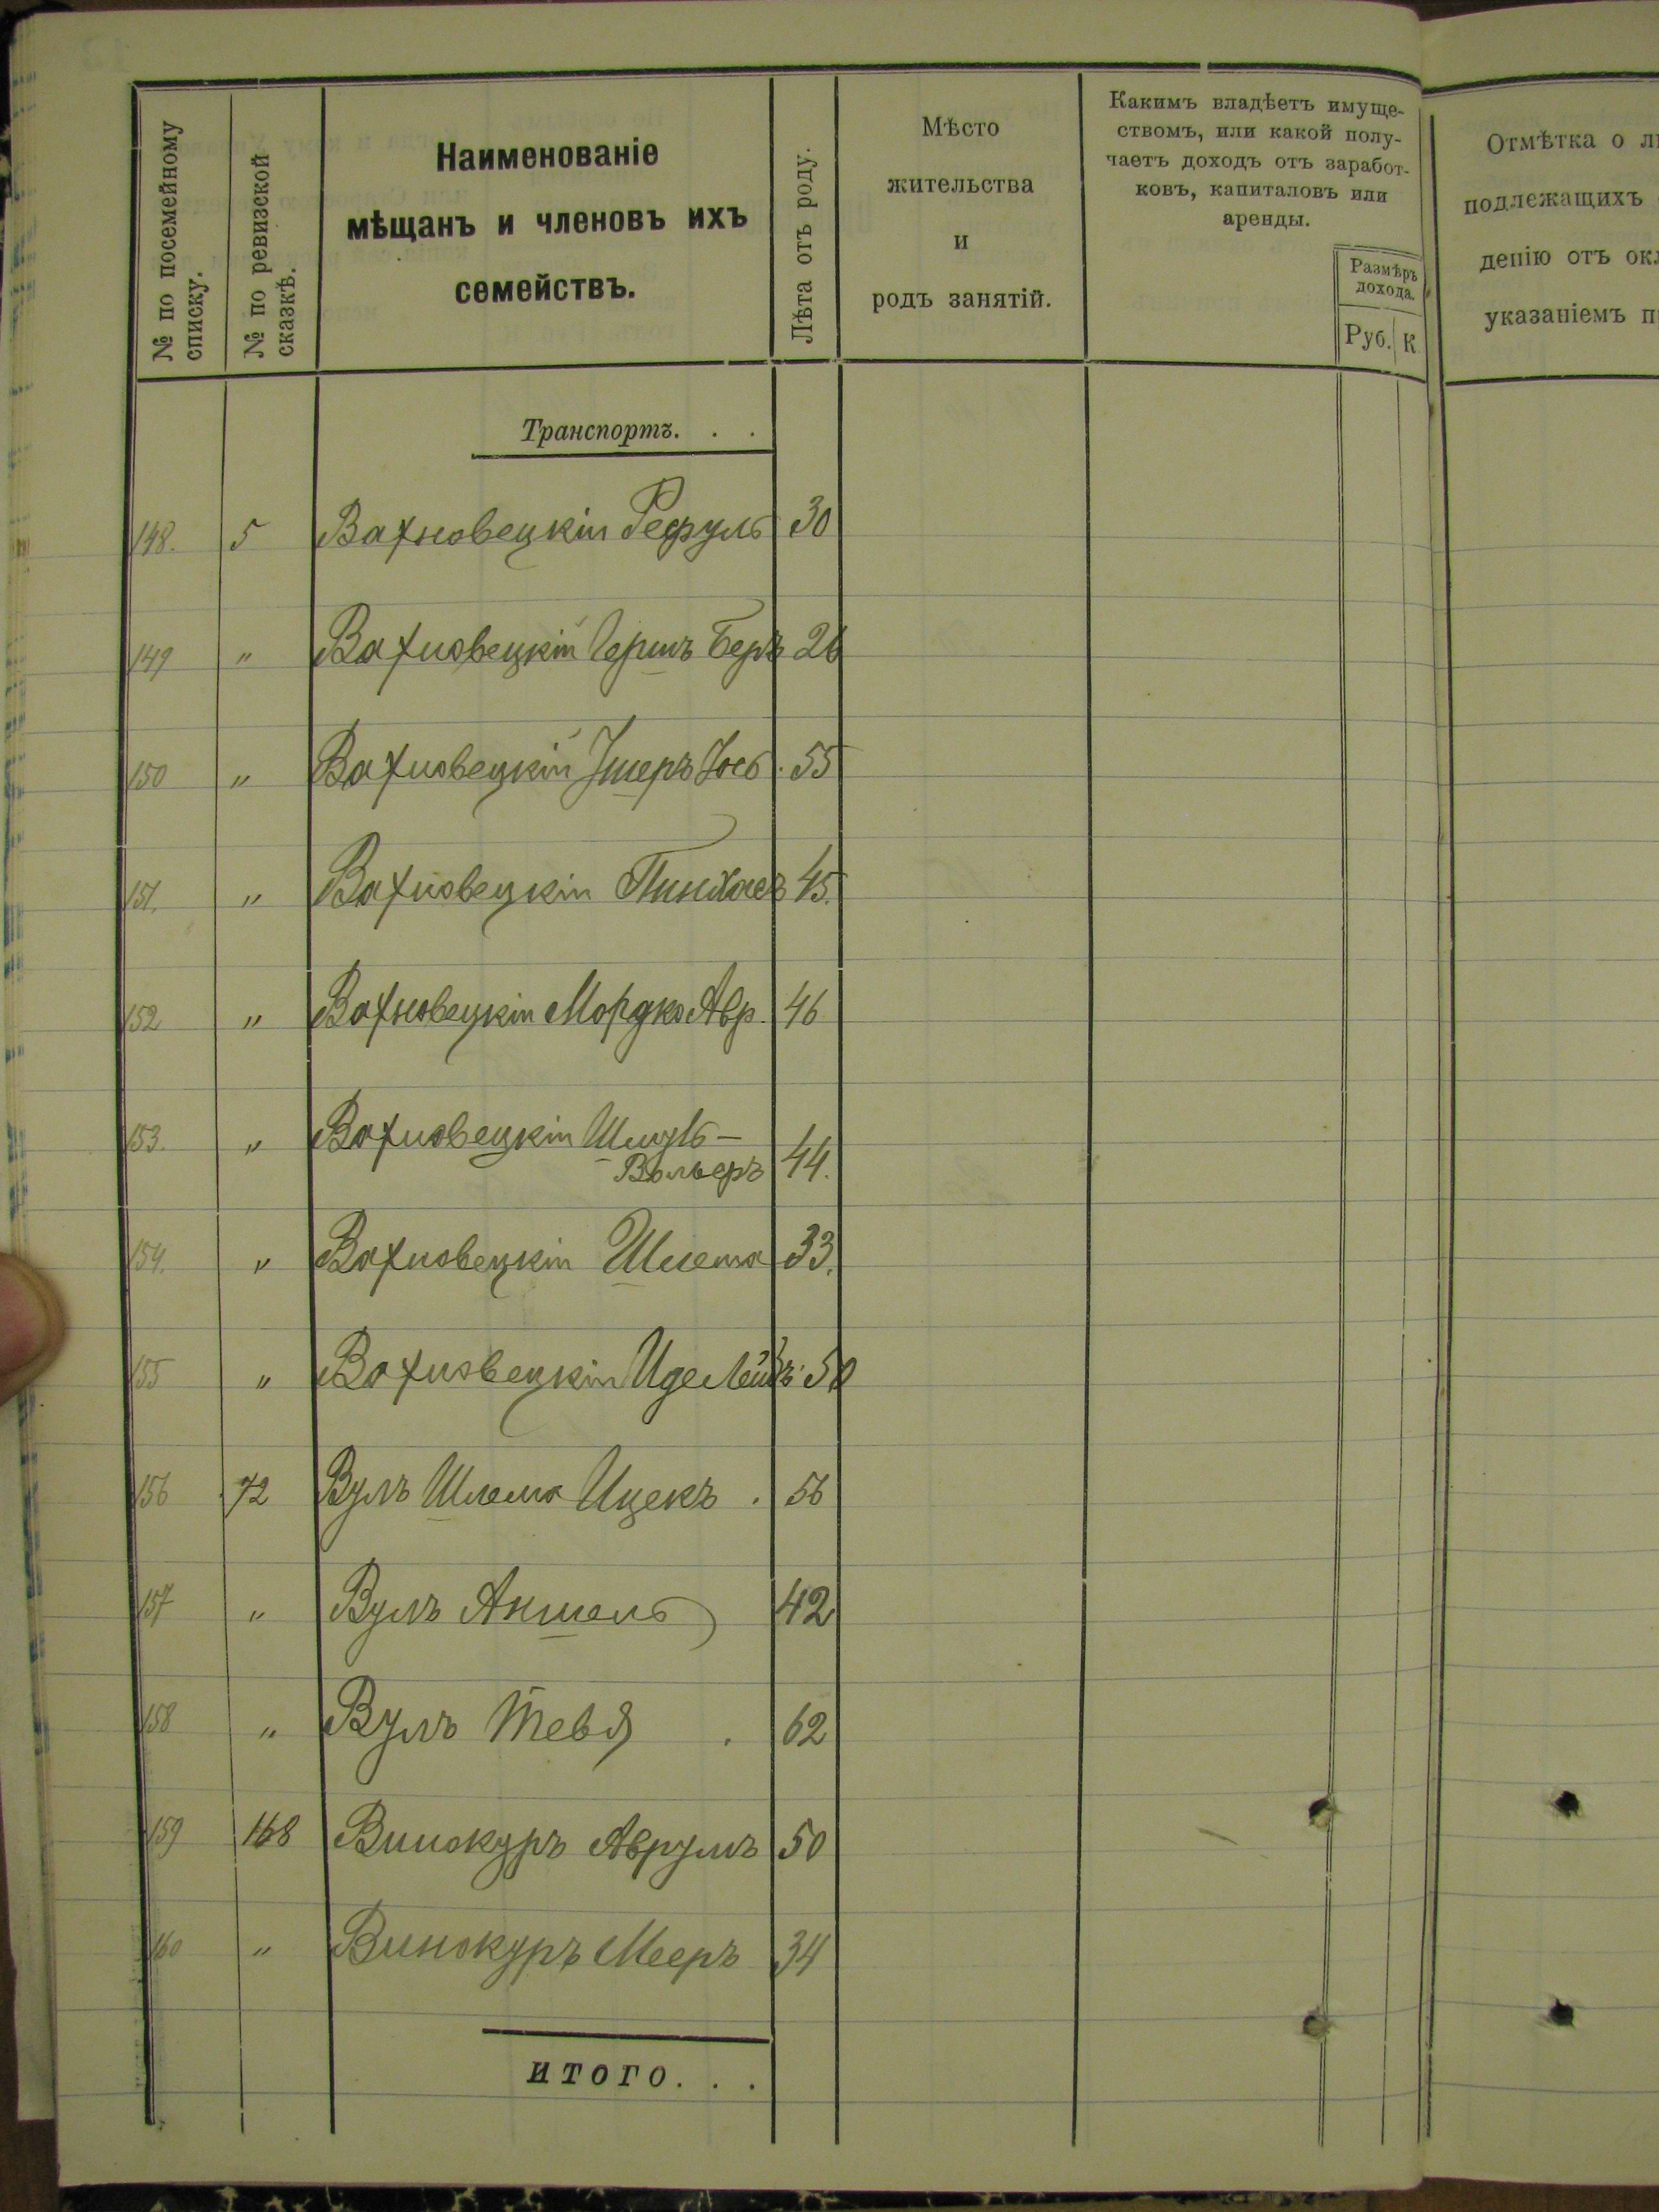 № по посемейному
списку.
№ по ревизской
сказкѣ.
Наименованіе
мѣщанъ и членовъ ихъ
семействъ.
Лѣта отъ роду.
Мѣсто
жительства
и
родъ занятій.
Какимъ владѣетъ имуще-
ствомъ, или какой полу-
чаетъ доходъ отъ заработ-
ковъ, капиталовъ или
аренды.
Размѣръ
дохода.
Руб. К
Отмѣтка о
подлежащихъ
денію отъ
указаніемъ
Транспортъ. . .
148. 5 Вахновецкій 30
149 " Вахновецкій Гершъ Беръ 26
150 " Вахновецкій Ушеръ Іось. 55
151. " Вахновецкій Пинхасъ 45.
152 " Вахновецкій Мордко Авр. 46
153. " Вахновецкій
44.
154. " Вахновецкій Шлема 33.
155 " Вахновецкій Иде Лейбъ. 50
156 72 Вулъ Шлема Ицекъ . 56
157 " Вулъ Аншель 42
158 " Вулъ Тевя . 62
159 168 Винокуръ Аврумъ 50
160 " Винокуръ Мееръ 34
ИТОГО. . .